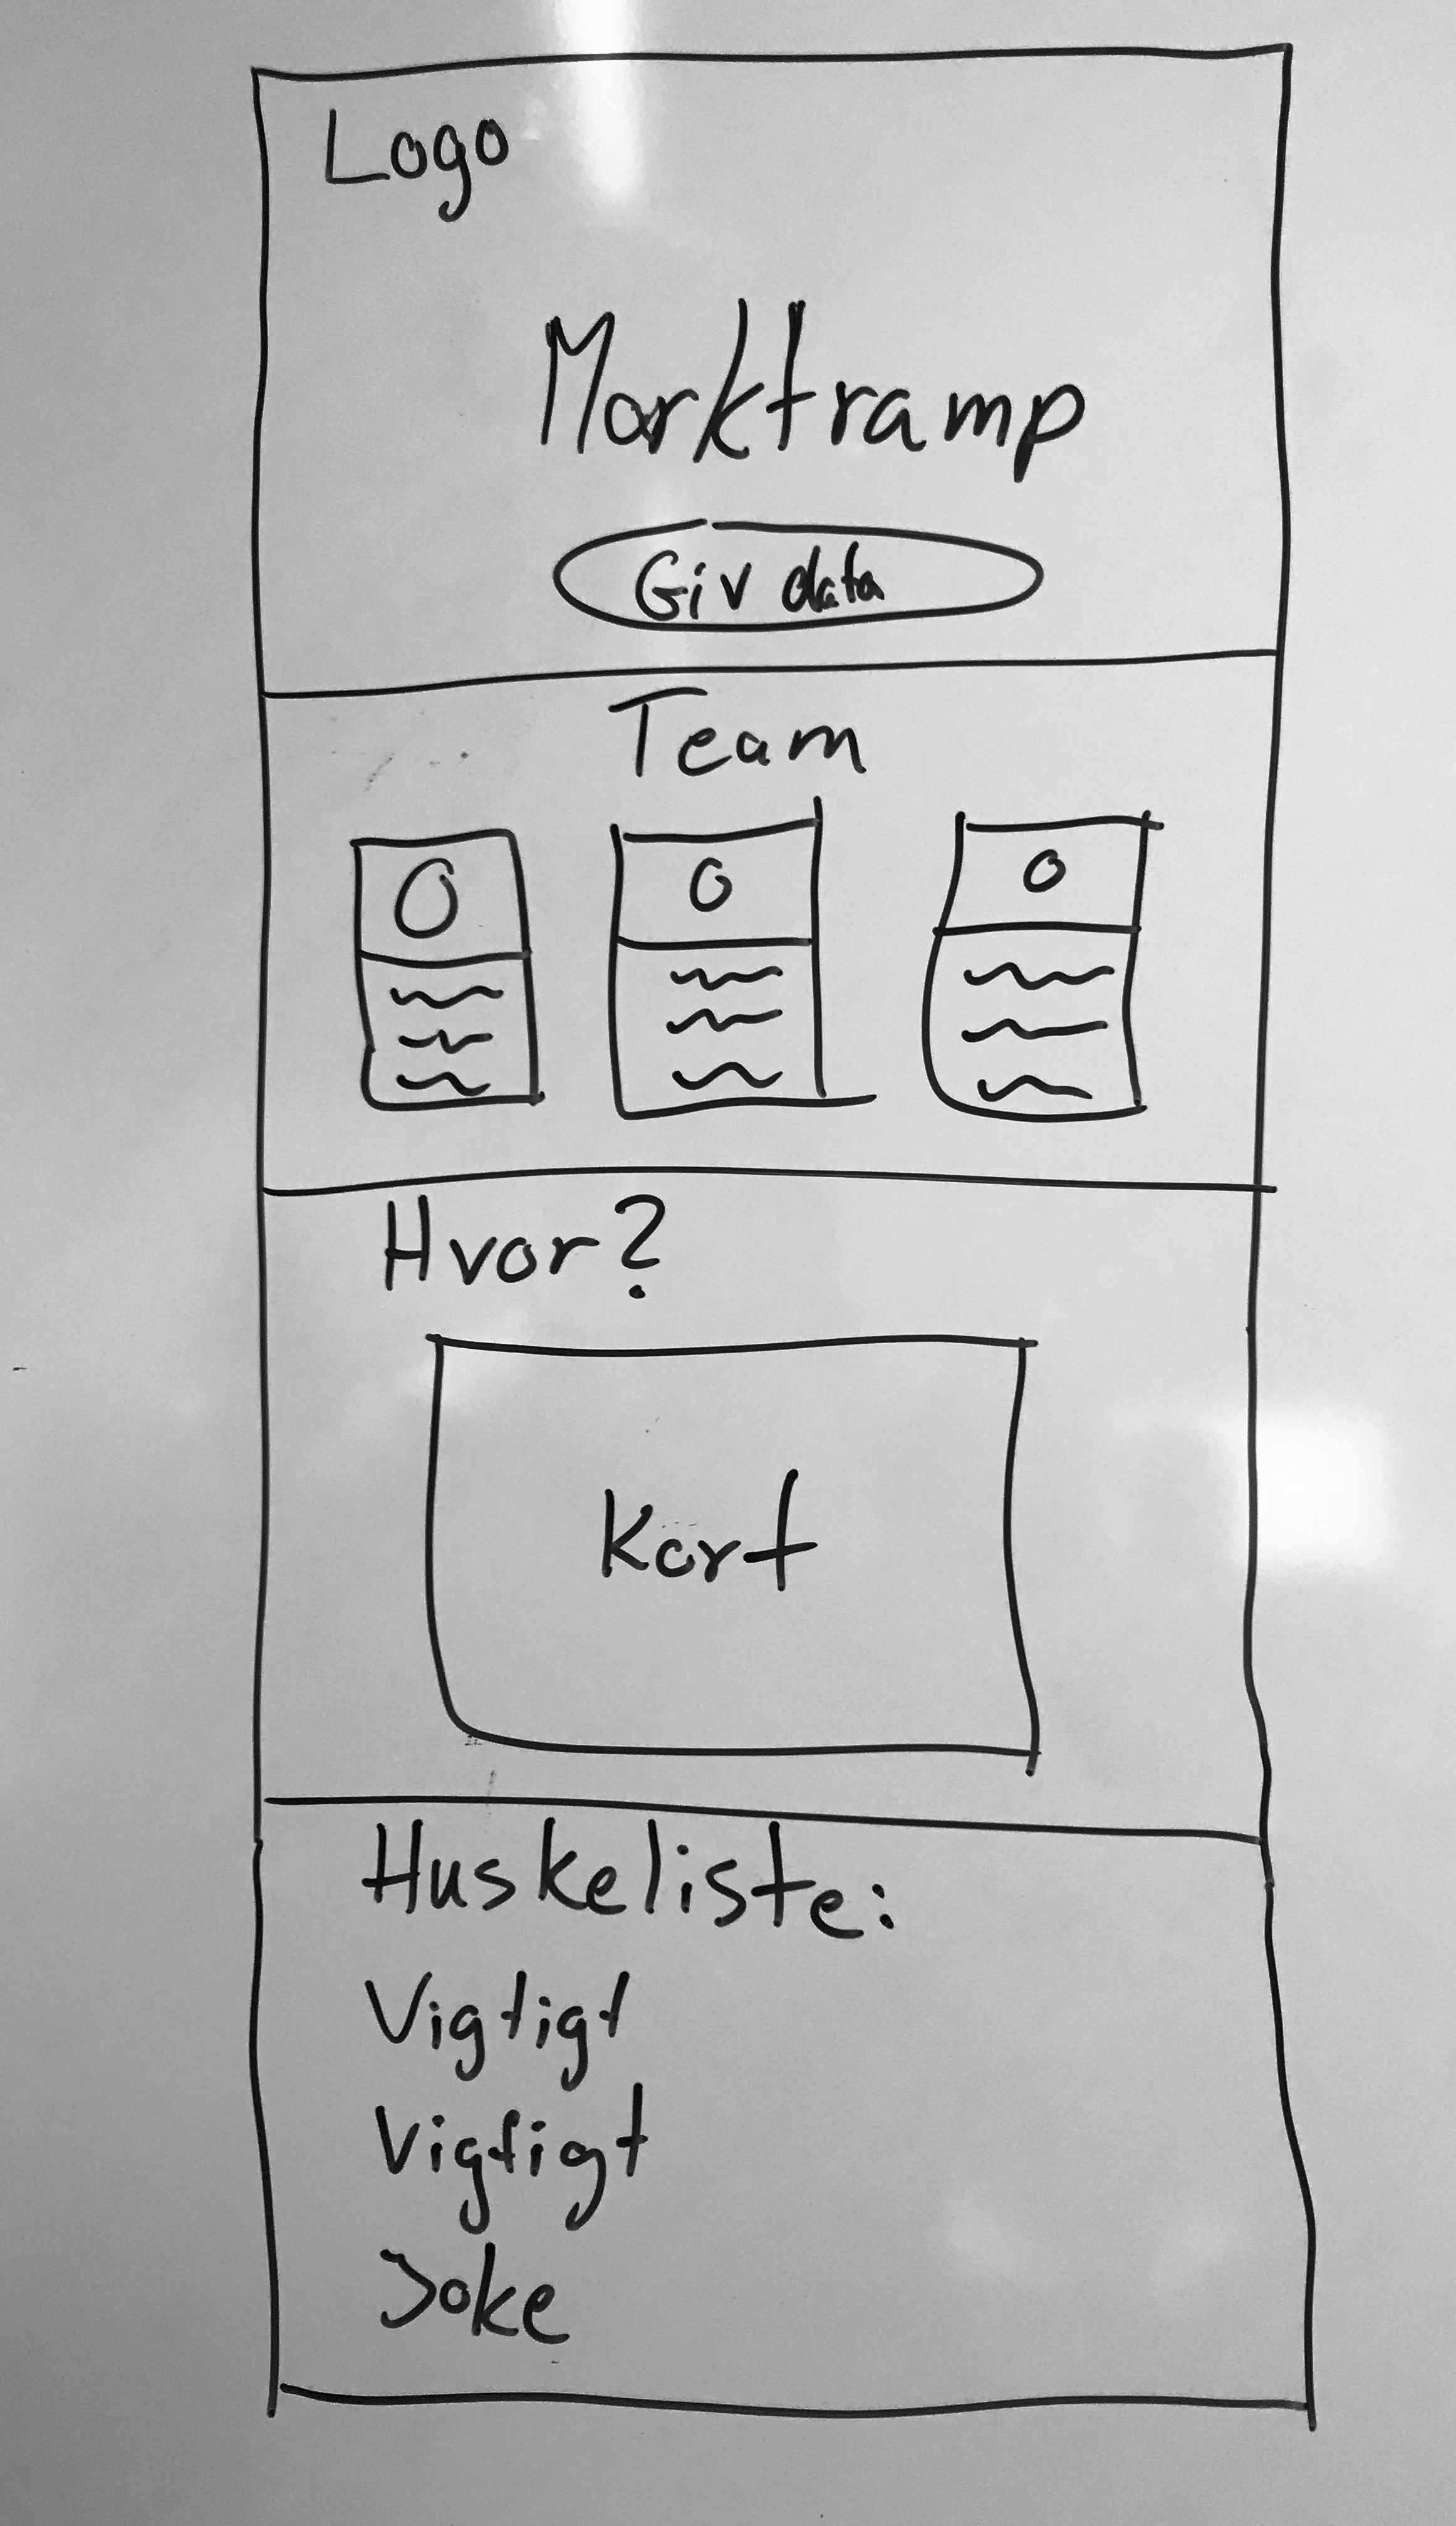 Logo
Marktramp
Giv data
Team
Hvor?
Kort
Huskeliste:
Vigtigt
Vigtigt
Joke